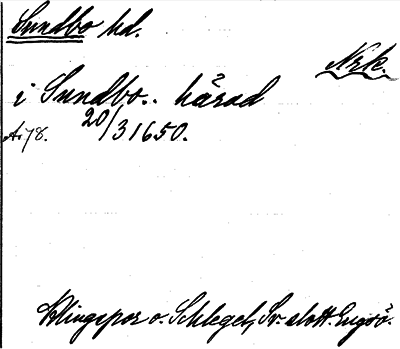 Sundbo hd.
Nrk.
i Sundbo.. härad
A. 78. 20/3 1650.
Klingspor o. Schlegel, Sv. slott. Engsö.